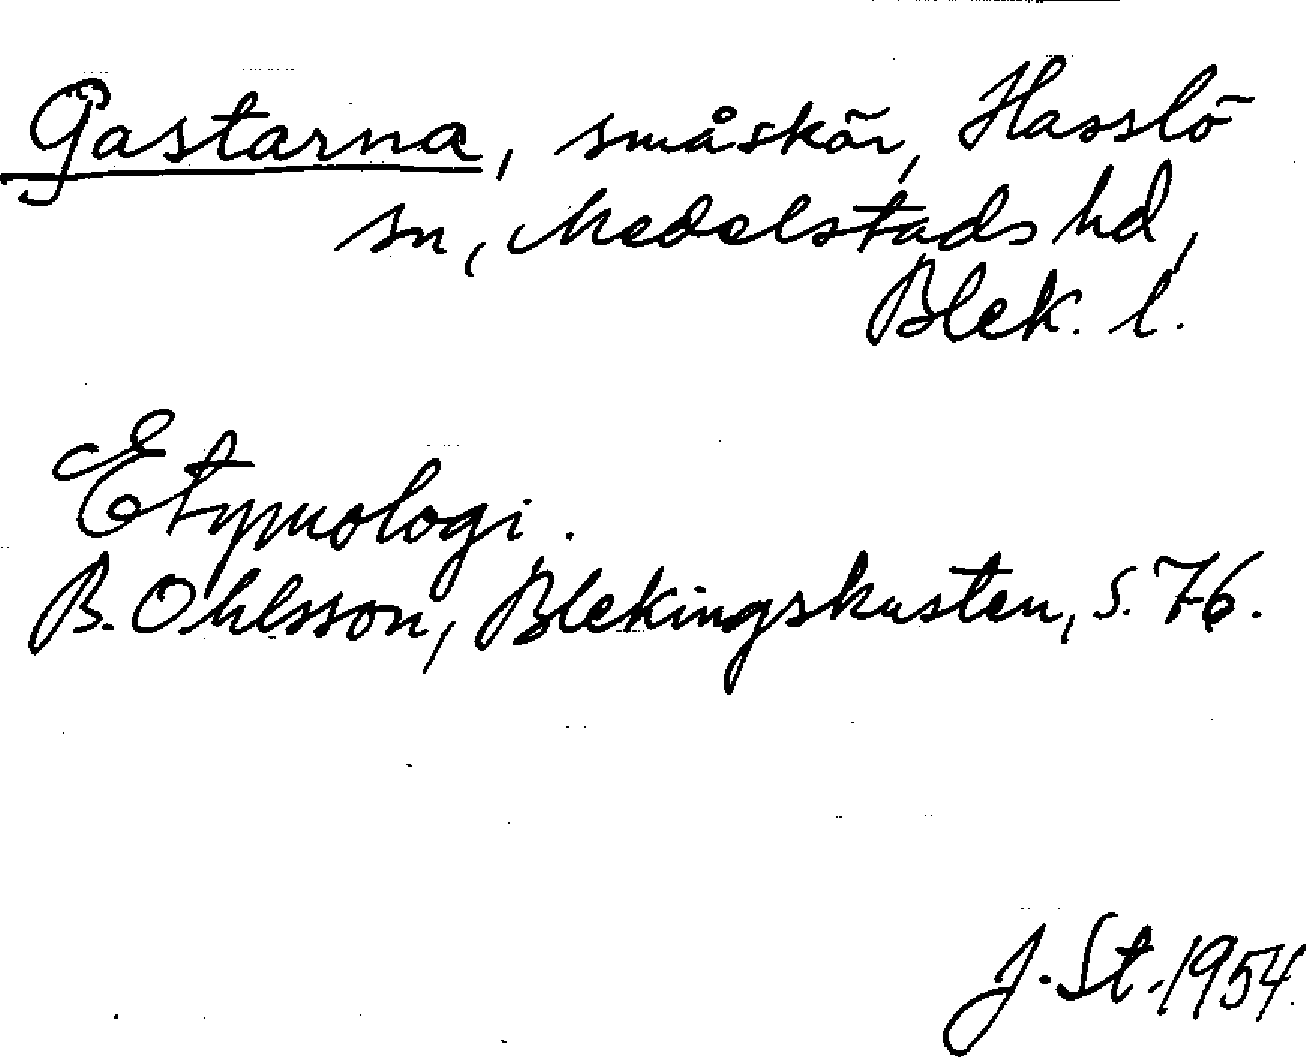 Gastarna, småskär, Hasslö
sn, Medelstads hd,
Blek. l.
Etymologi.
B. Ohlsson, Blekingskusten, s. 76.
J. St. 1954.